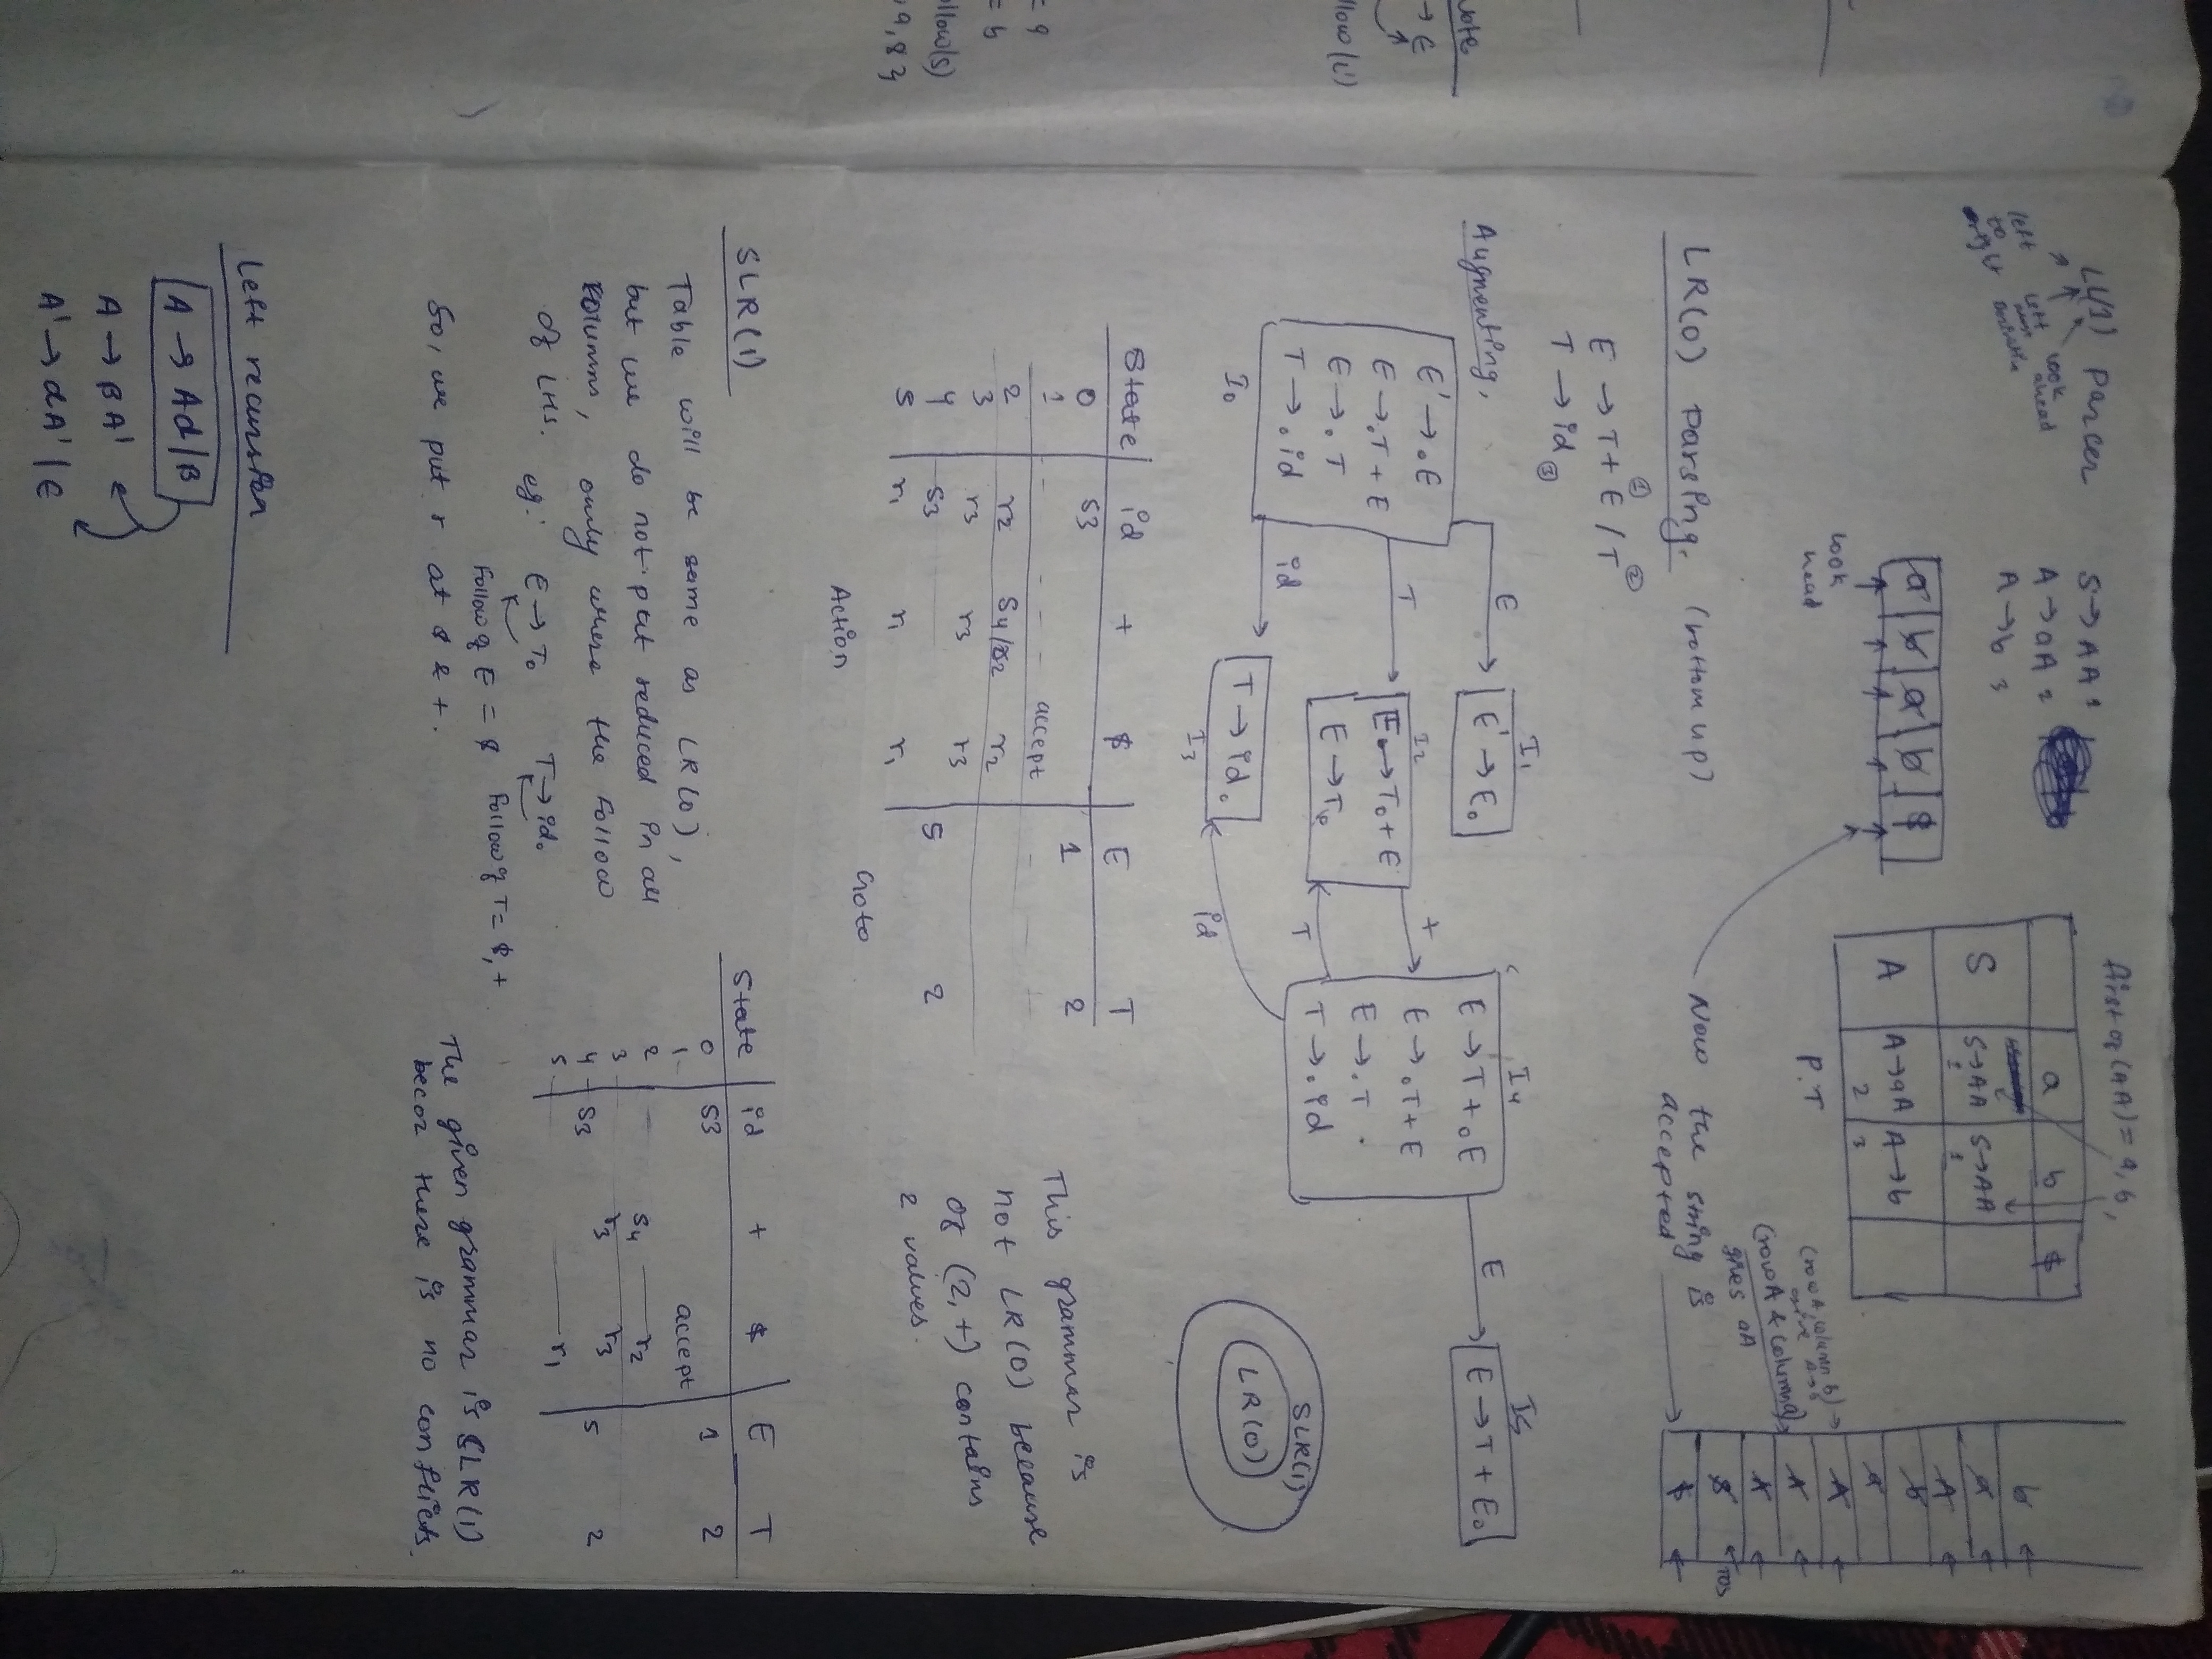 LL(1) parser
left to right
left most derivate
look ahead
S → AA 1
A → aA 2
A → b 3
a b a b $
look head
first of (AA) = a, b,
a b $
S S→AA 1 S→AA 1
A A→aA 2 A→b 3
P.T
Now the string is
accepted
(row A, column b)
gives A→b
(row A & column a)
gives aA
b
a
A
b
a
A
A
A
S
$
TOS
LR(0) parsing. (bottom up)
E → T + E ① / T ②
T → id ③
Augmenting,
E' → .E
E → .T + E
E → .T
T → .id
I0
E
I1
E' → E.
T
I2
E → T. + E
E → T.
id
T → id.
I3
+
I4
E → T + .E
E → .T + E
E → .T
T → .id
T
id
E
I5
E → T + E.
SLR(1)
LR(0)
State id + $ E T
0 S3 1 2
1 accept
2 r2 S4/r2 r2
3 r3 r3 r3
4 S3 5 2
5 r1 r1 r1
Action Goto
This grammar is
not LR(0) because
of (2, +) contains
2 values.
SLR(1)
Table will be same as LR(0),
but we do not put reduced in all
columns, only where the follow
of LHS. eg: E → T. T → id.
Follow of E = $ Follow of T = $, +
So, we put r at $ & +.
State id + $ E T
0 S3 1 2
1 accept
2 S4 r2
3 r3 r3
4 S3 5 2
5 r1
The given grammar is SLR(1)
becoz there is no conflicts.
Left recursion
A → Aα|B
A → BA'
A' → αA' | ε